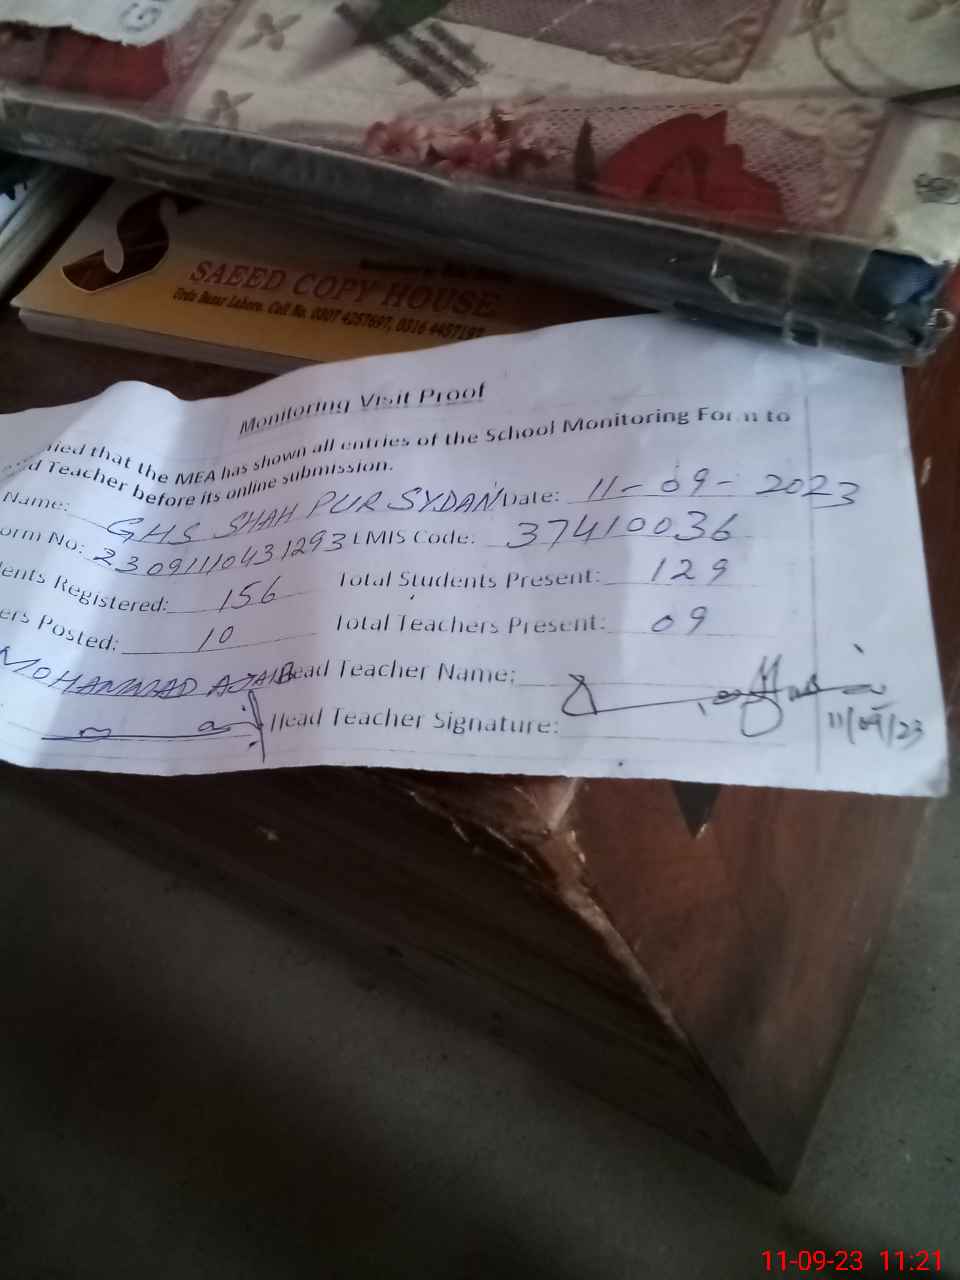 SAEED COPY HOUSE
Urdu Bazar Lahore. Cell No. 0307 4257697, 0316 4457197
Monitoring Visit Proof
ied that the MEA has shown all entries of the School Monitoring Form to
d Teacher before its online submission.
Name: GHS SHAH PUR SYDAN Date: 11-09-2023
orm No: 2309111043 1293 EMIS Code: 37410036
ents Registered: 156 Total Students Present: 129
ers Posted: 10 Total Teachers Present: 09
MOHAMMAD Head Teacher Name:
Head Teacher Signature:
11/09/23
11-09-23 11:21